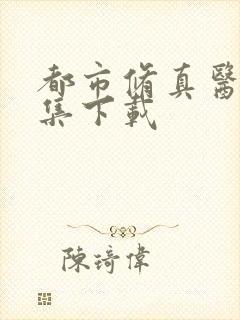 都市脩真醫
集下載
陳琦偉